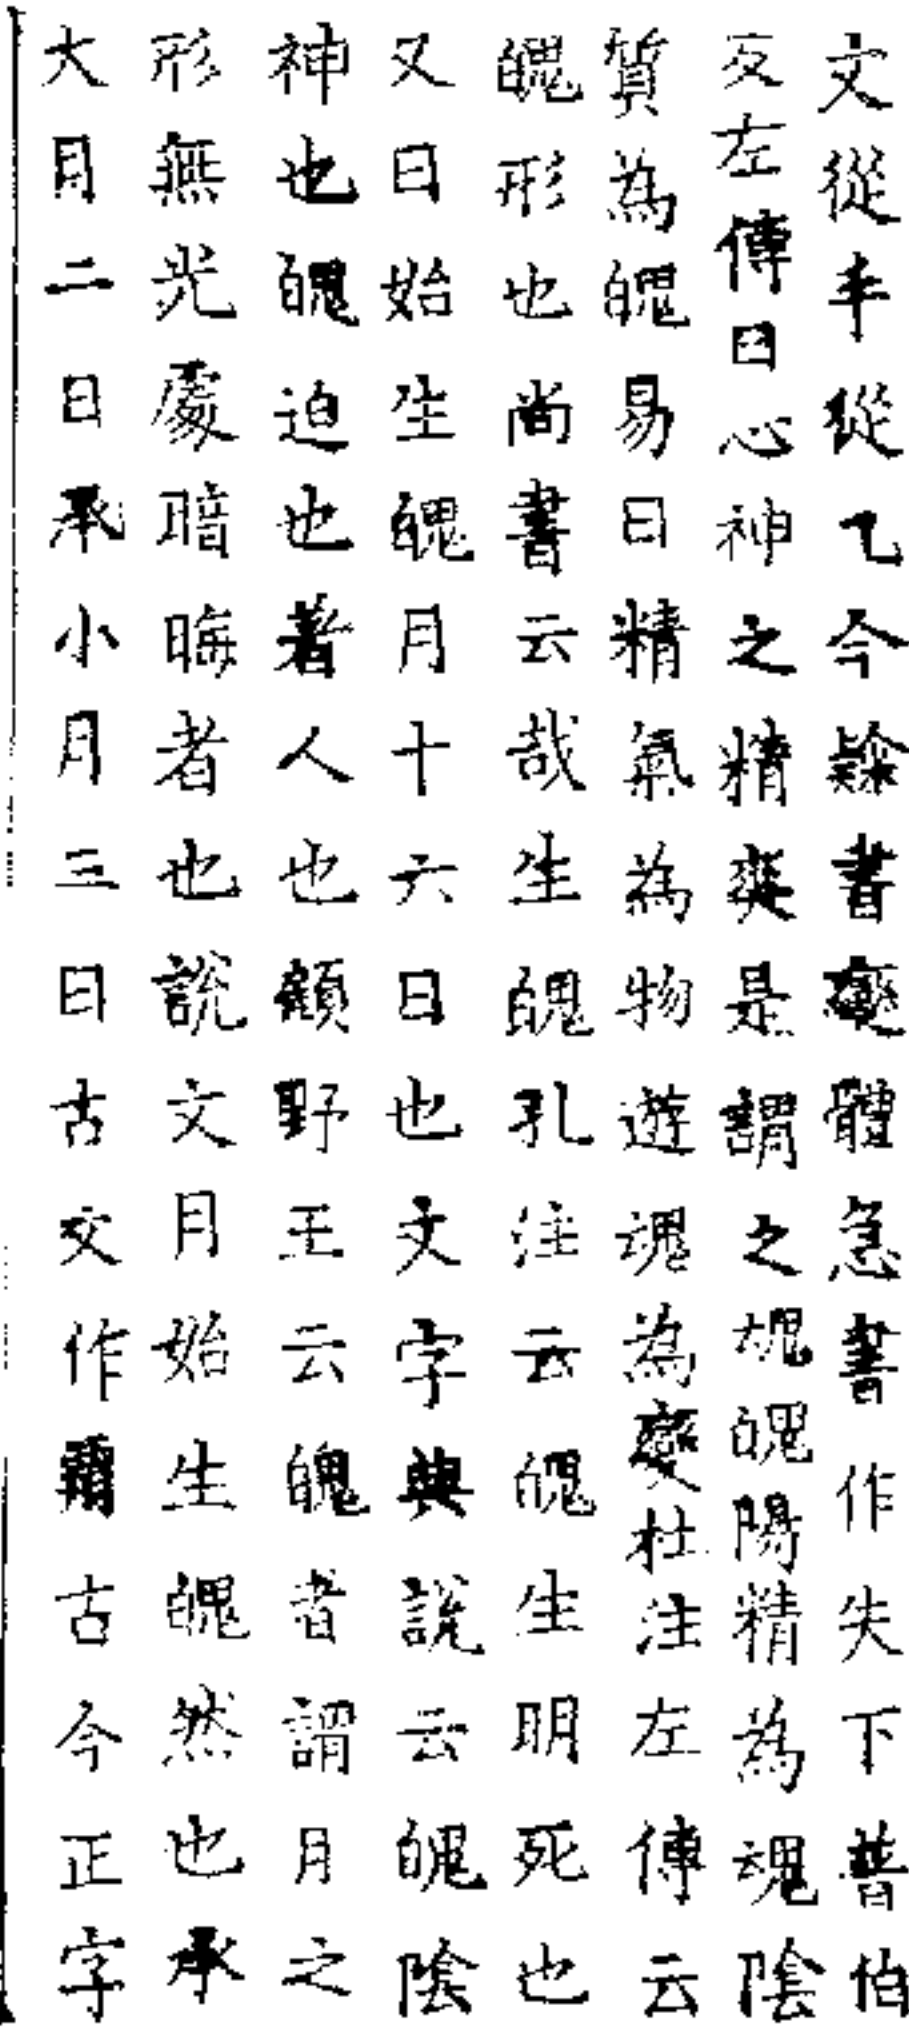 文從丰從乁今隸書變體急書作失下普伯
反左傳曰心神之精爽是謂之魂魄陽精為魂陰
質為魄易曰精氣為物遊魂為變杜注左傳云
魄形也尚書云哉生魄孔注云魄生明死也
又曰始生魄月十六日也文字典說云魄陰
神也魄迫也著人也顧野王云魄者謂月之
形無光處暗晦者也說文月始生魄然也承
大月二日承小月三日古文作𩲸古今正字